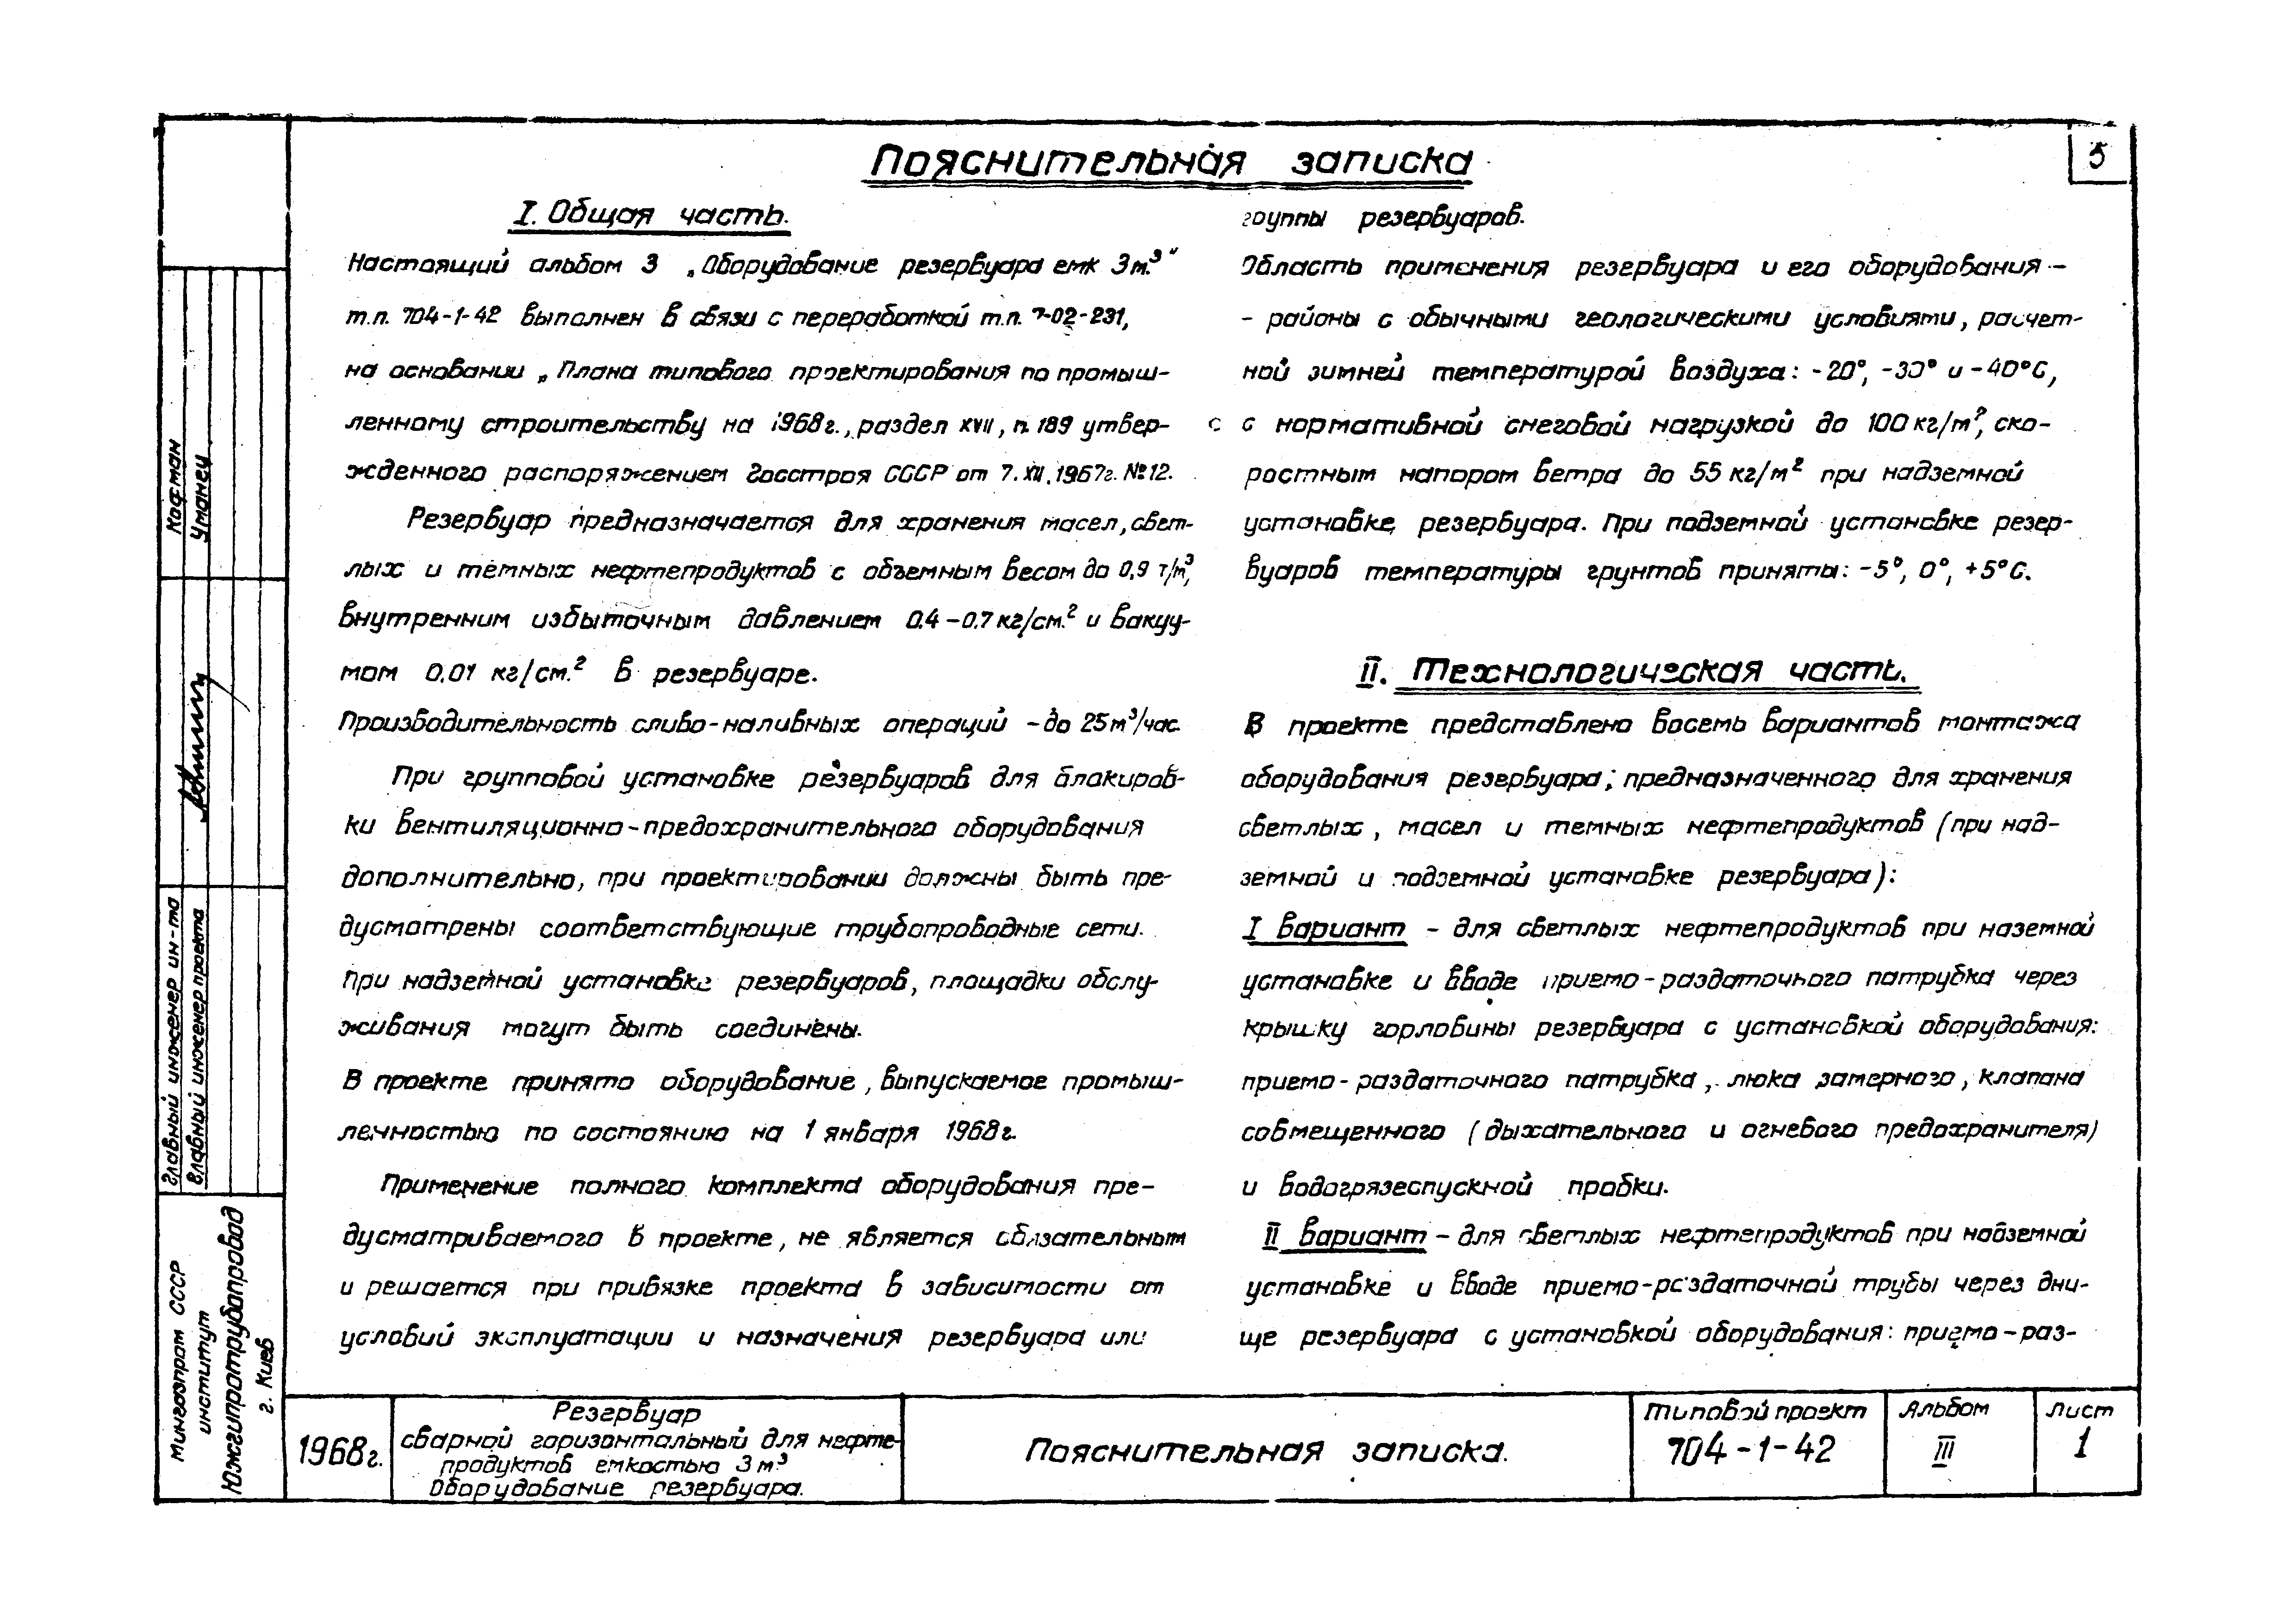 Пояснительная записка
5
I. Общая часть.
Настоящий альбом 3 „Оборудование резервуара емк 3м.³"
т.п. 704-1-42 выполнен в связи с переработкой т.п. 7-02-231,
на основании „Плана типового проектирования по промыш-
ленному строительству на 1968г., раздел XVII, п. 189 утвер-
жденного распоряжением Госстроя СССР от 7.XII.1967г. №12.
Резервуар предназначается для хранения масел, свет-
лых и темных нефтепродуктов с объемным весом до 0,9 т/м³,
внутренним избыточным давлением 0.4-0.7 кг/см.² и вакуу-
мом 0.01 кг/см.² в резервуаре.
Производительность сливо-наливных операций - до 25м³/час.
При групповой установке резервуаров для блокиров-
ки вентиляционно-предохранительного оборудования
дополнительно, при проектировании должны быть пре-
дусмотрены соответствующие трубопроводные сети.
При надземной установке резервуаров, площадки обслу-
живания могут быть соединены.
В проекте принято оборудование, выпускаемое промыш-
ленностью по состоянию на 1 января 1968г.
Применение полного комплекта оборудования пре-
дусматриваемого в проекте, не является обязательным
и решается при привязке проекта в зависимости от
условий эксплуатации и назначения резервуара или
группы резервуаров.
Область применения резервуара и его оборудования -
- районы с обычными геологическими условиями, расчет-
ной зимней температурой воздуха: -20°, -30° и -40°С,
с нормативной снеговой нагрузкой до 100 кг/м², ско-
ростным напором ветра до 55 кг/м² при надземной
установке резервуара. При подземной установке резер-
вуаров температуры грунтов приняты: -5°, 0°, +5°С.
II. Технологическая часть.
В проекте представлено восемь вариантов монтажа
оборудования резервуара; предназначенного для хранения
светлых, масел и темных нефтепродуктов (при над-
земной и подземной установке резервуара):
I вариант - для светлых нефтепродуктов при наземной
установке и вводе приемо-раздаточного патрубка через
крышку горловины резервуара с установкой оборудования:
приемо-раздаточного патрубка, люка замерного, клапана
совмещенного (дыхательного и огневого предохранителя)
и водогрязеспускной пробки.
II вариант - для светлых нефтепродуктов при надземной
установке и вводе приемо-раздаточной трубы через дни-
ще резервуара с установкой оборудования: приемо-раз-
Кофман
Уманец
Главный инженер ин-та
Главный инженер проекта
Мингазпром СССР
институт
Южгипротрубопровод
г. Киев
1968г.
Резервуар
сварной горизонтальный для нефте-
продуктов емкостью 3м.³
Оборудование резервуара.
Пояснительная записка.
Типовой проект
704-1-42
Альбом
III
Лист
1